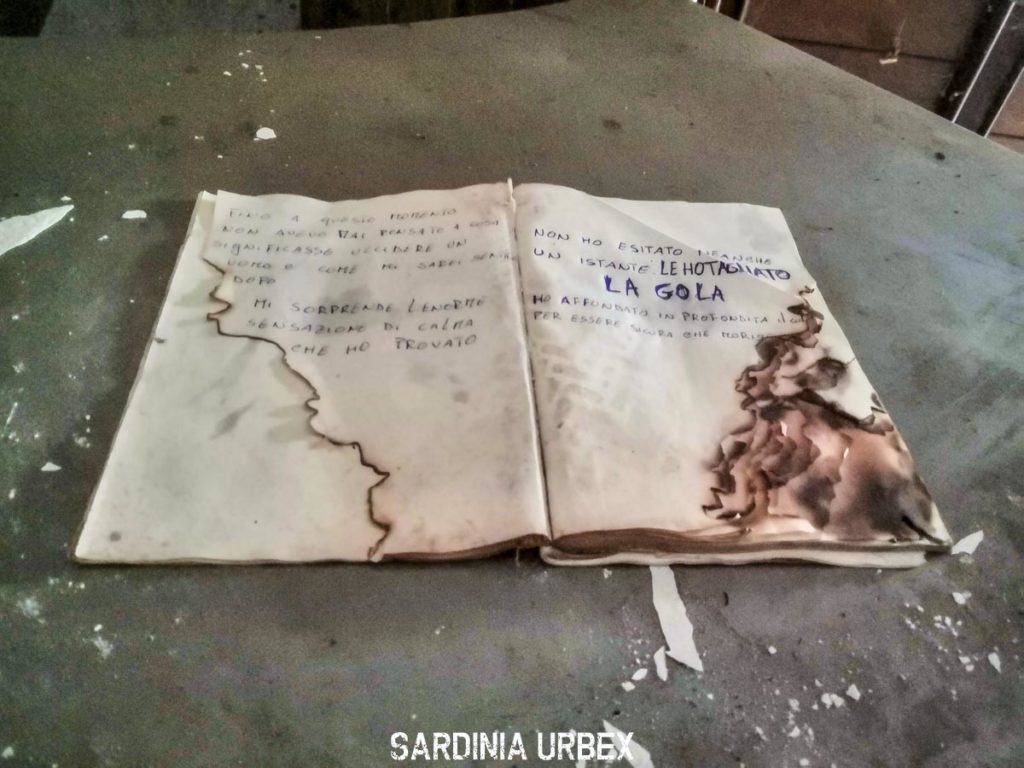 FINO A QUESTO MOMENTO
NON AVEVO MAI PENSATO A COSA
SIGNIFICASSE UCCIDERE UN
UOMO E COME MI SAREI SENTITA
DOPO
MI SORPRENDE L'ENORME
SENSAZIONE DI CALMA
CHE HO PROVATO
NON HO ESITATO NEANCHE
UN ISTANTE LE HO TAGLIATO
LA GOLA
HO AFFONDATO IN PROFONDITA IL
PER ESSERE SICURA CHE
SARDINIA URBEX